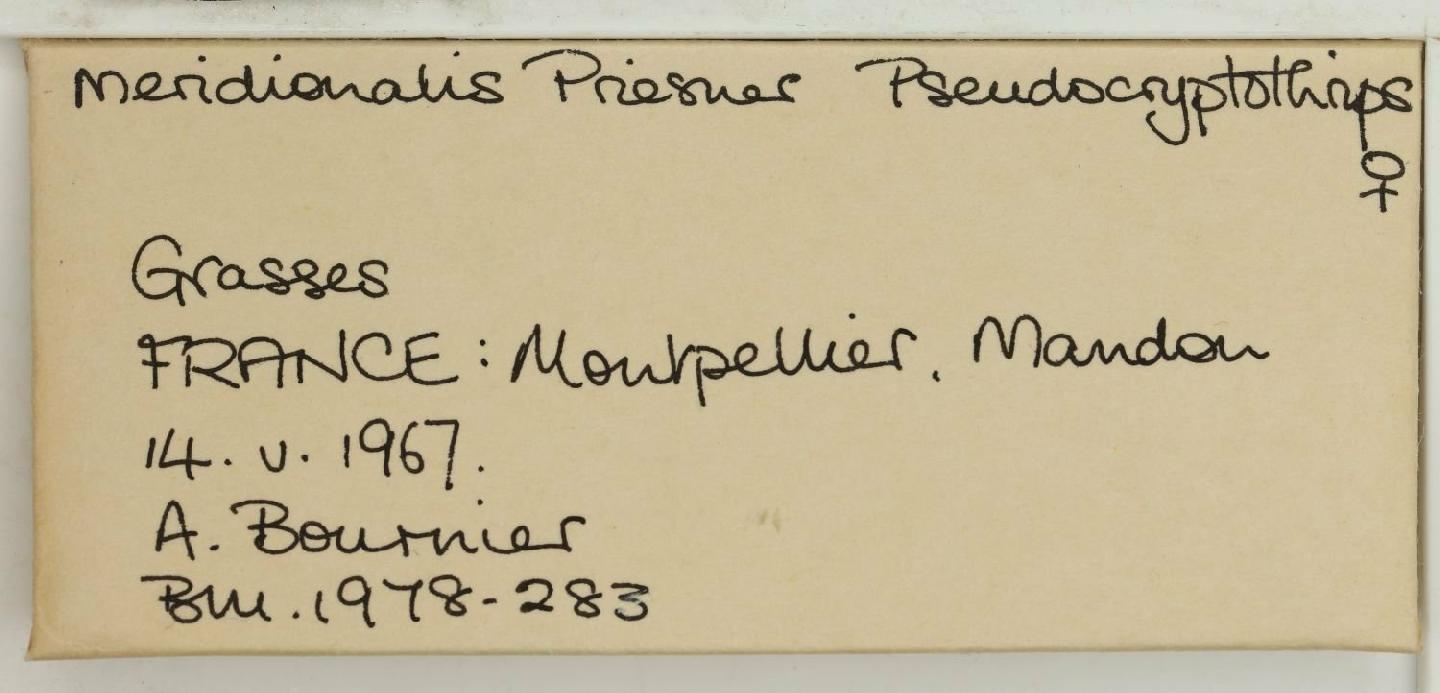 meridionalis Priesner Pseudocryptothrips
♀
Grasses
FRANCE: Montpellier. Mandon
14. v. 1967.
A. Bournier
BM. 1978-283